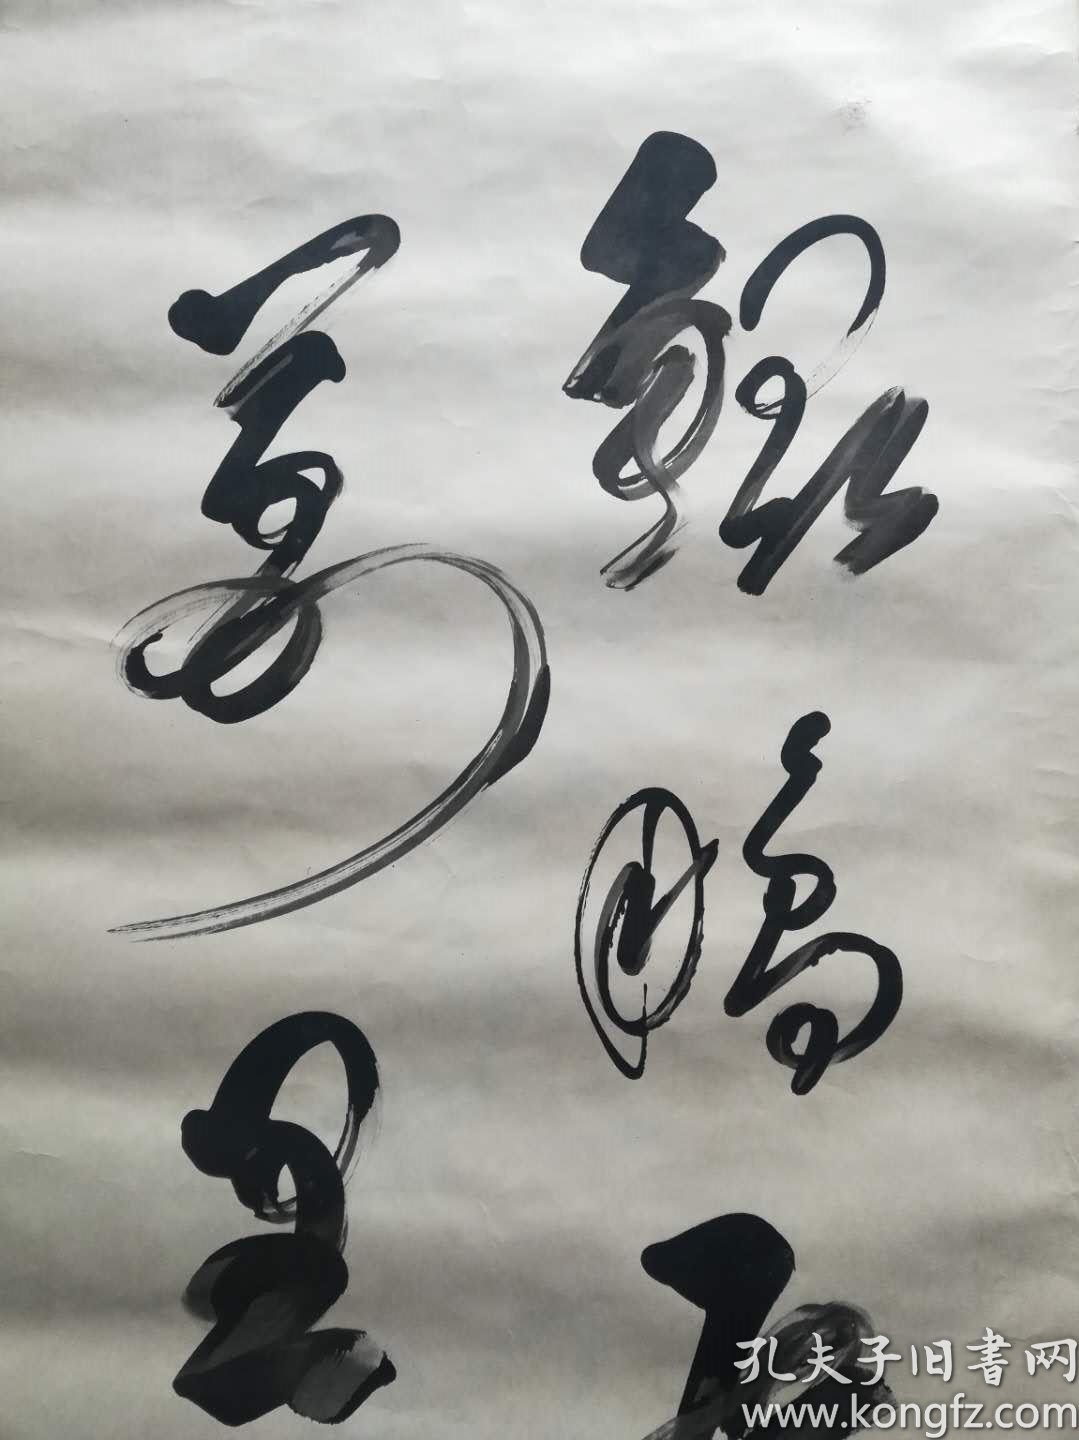 鯤鵬
萬里
孔夫子旧書网
www.kongfz.com